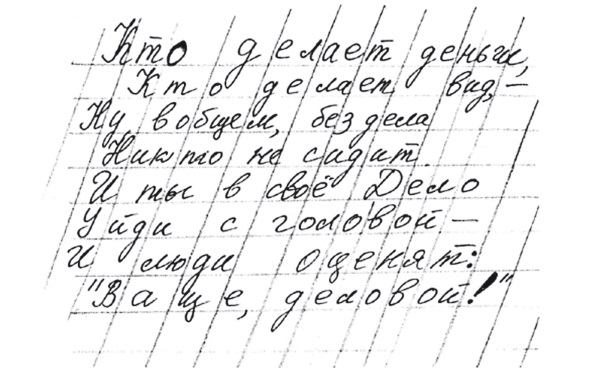 Кто делает деньги,
Кто делает вид, —
Ну, в общем, без дела
Никто не сидит.
И ты в своё Дело
Уйди с головой —
И люди оценят:
"Ваще, деловой!"